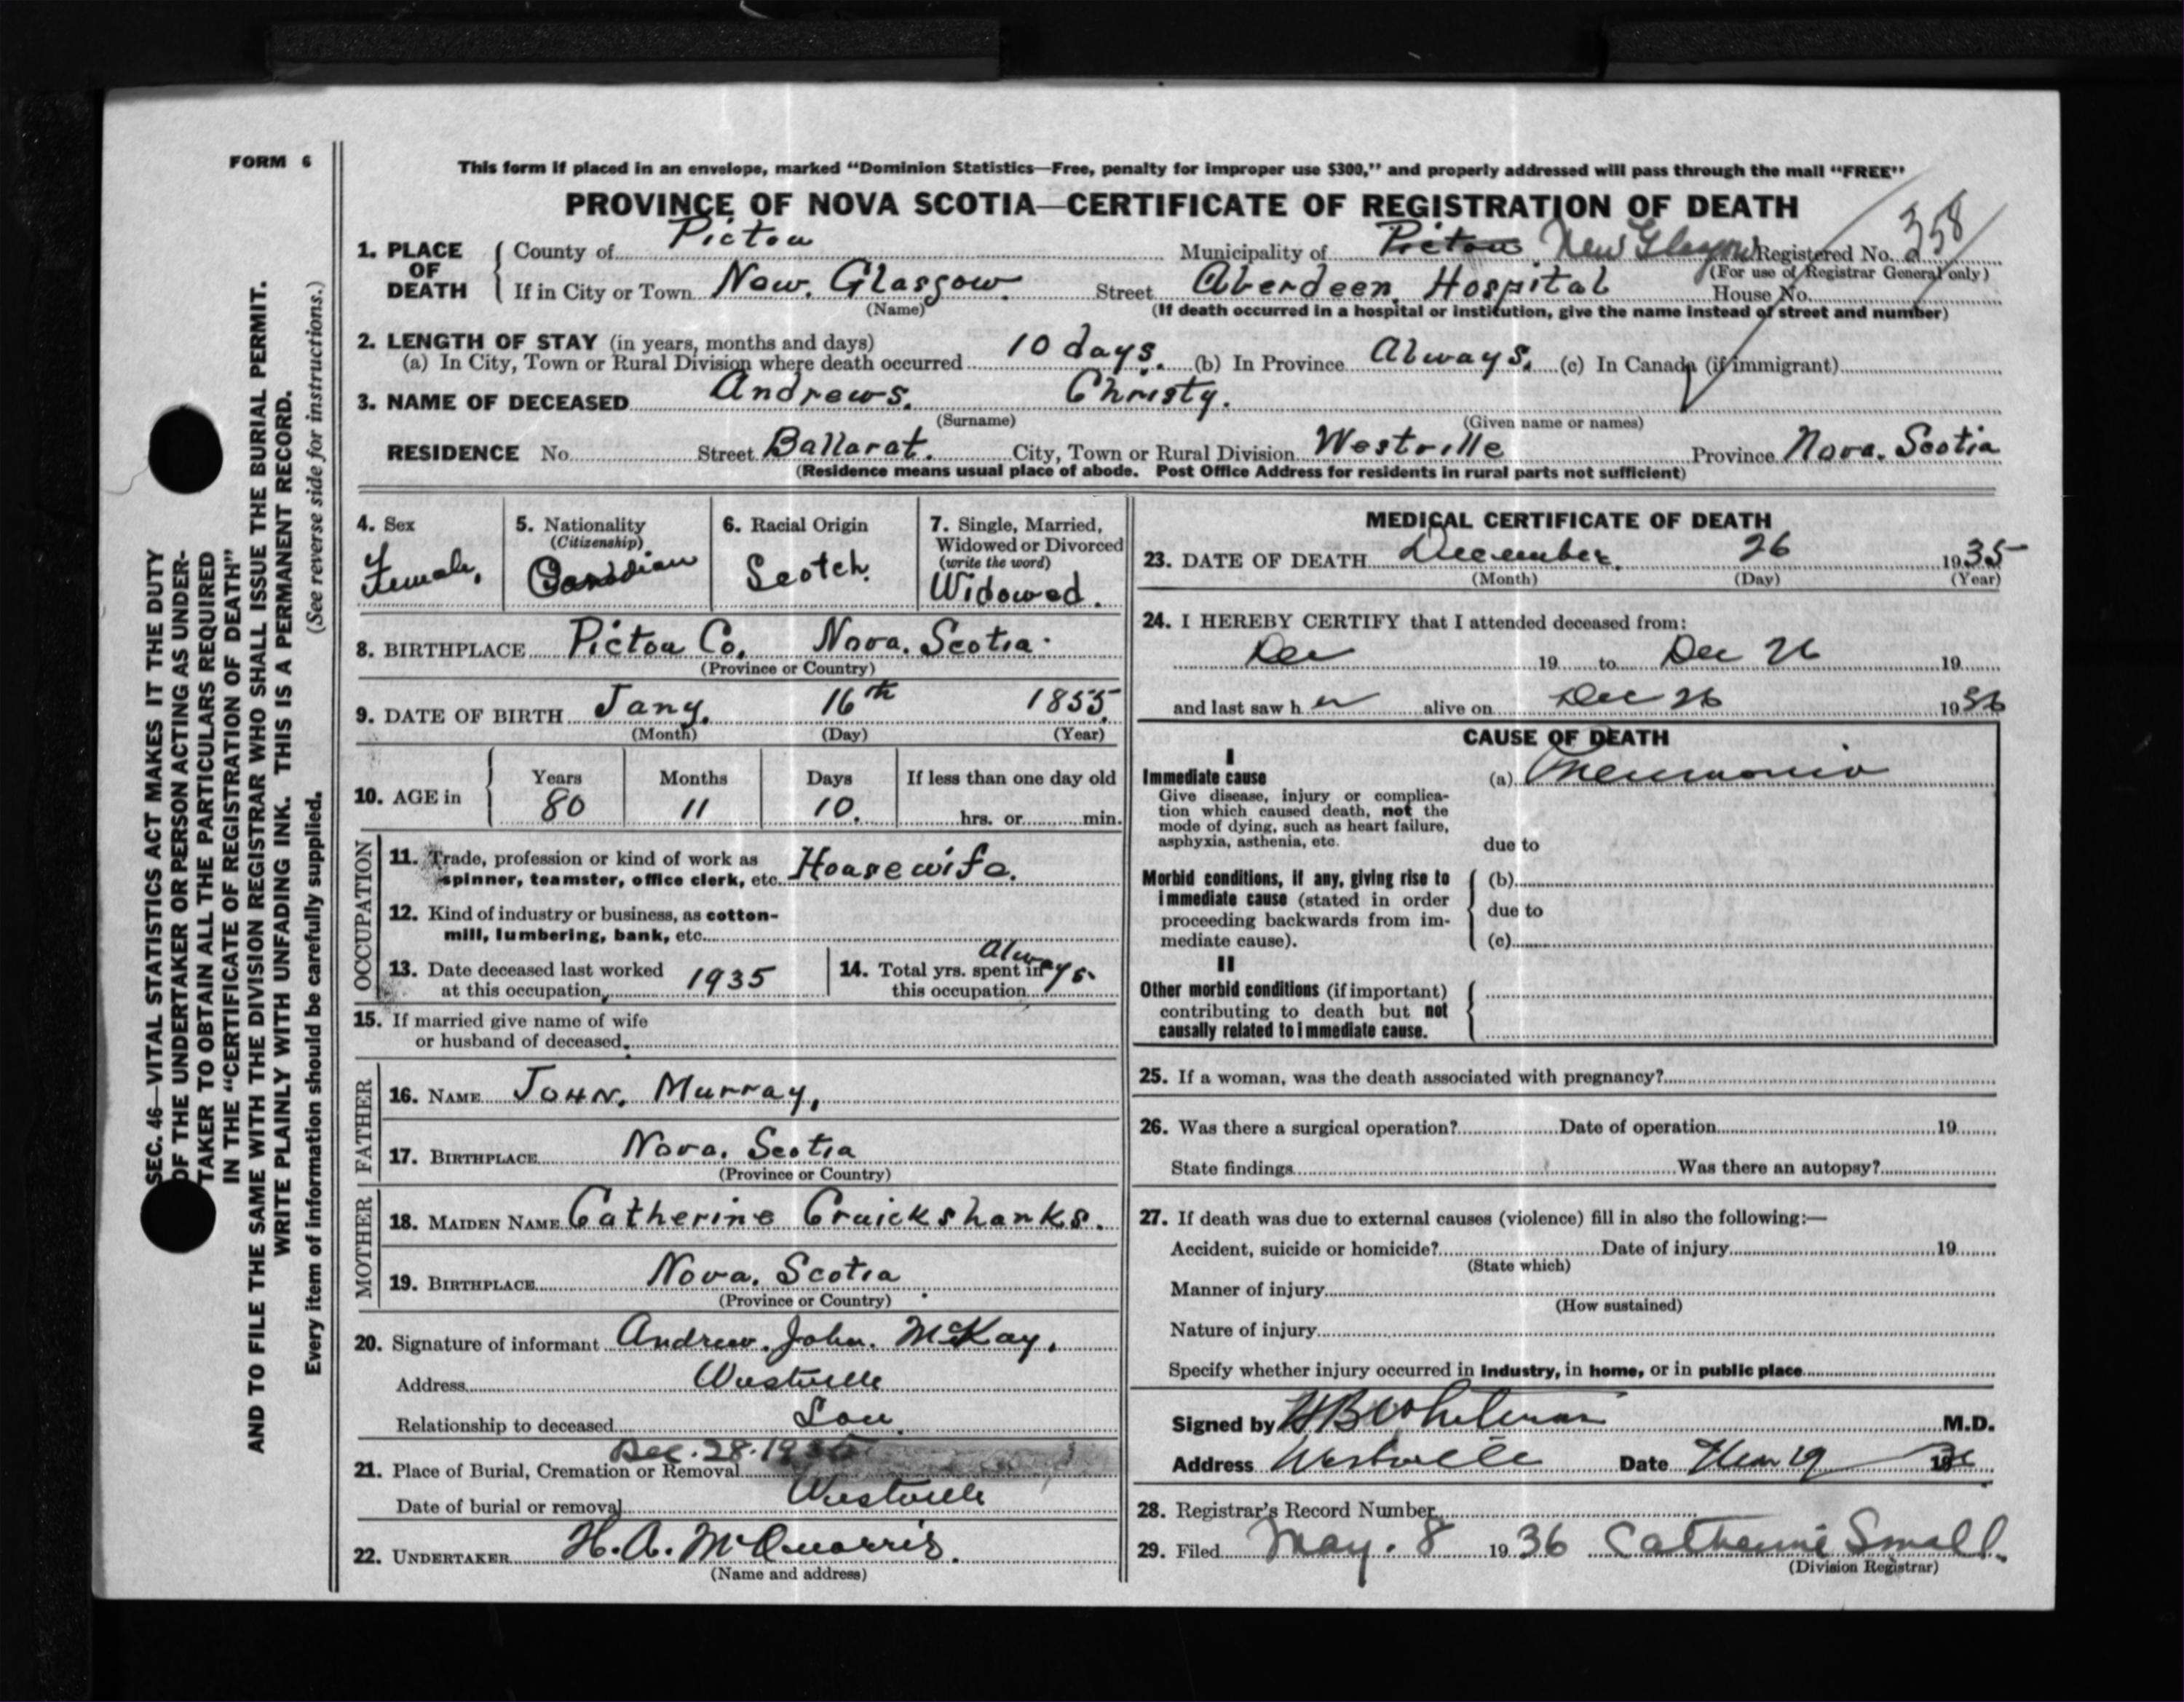 FORM 6
This form if placed in an envelope, marked "Dominion Statistics—Free, penalty for improper use $300," and properly addressed will pass through the mail "FREE"
PROVINCE OF NOVA SCOTIA—CERTIFICATE OF REGISTRATION OF DEATH
1. PLACE OF DEATH County of Pictou Municipality of Pictou New Glasgow Registered No. 358
(For use of Registrar General only)
If in City or Town New. Glasgow. Street Aberdeen. Hospital House No.
(Name) (If death occurred in a hospital or institution, give the name instead of street and number)
2. LENGTH OF STAY (in years, months and days)
(a) In City, Town or Rural Division where death occurred 10 days. (b) In Province Always. (c) In Canada (if immigrant)
3. NAME OF DECEASED Andrews. Christy.
(Surname) (Given name or names)
RESIDENCE No. Street Ballarat. City, Town or Rural Division Westville Province Nova. Scotia
(Residence means usual place of abode. Post Office Address for residents in rural parts not sufficient)
4. Sex
Female,
5. Nationality
(Citizenship)
Canadian
6. Racial Origin
Scotch.
7. Single, Married,
Widowed or Divorced
(write the word)
Widowed.
8. BIRTHPLACE Pictou Co. Nova. Scotia.
(Province or Country)
9. DATE OF BIRTH Jany. 16th 1855.
(Month) (Day) (Year)
10. AGE in
Years Months Days If less than one day old
80 11 10. hrs. or min.
OCCUPATION
11. Trade, profession or kind of work as
spinner, teamster, office clerk, etc. Housewife.
12. Kind of industry or business, as cotton-
mill, lumbering, bank, etc.
13. Date deceased last worked
at this occupation 1935
14. Total yrs. spent in
this occupation Always.
15. If married give name of wife
or husband of deceased
FATHER
16. NAME JOHN. Murray,
17. BIRTHPLACE Nova. Scotia
(Province or Country)
MOTHER
18. MAIDEN NAME Catherine Cruickshanks.
19. BIRTHPLACE Nova. Scotia.
(Province or Country)
20. Signature of informant Andrew. John. McKay.
Address Westville
Relationship to deceased Son
Dec. 28. 1935
21. Place of Burial, Cremation or Removal
Date of burial or removal Westville
22. UNDERTAKER H. A. McQuarris.
(Name and address)
MEDICAL CERTIFICATE OF DEATH
23. DATE OF DEATH December. 26 1935
(Month) (Day) (Year)
24. I HEREBY CERTIFY that I attended deceased from:
Dec 19 to Dec 26 19
and last saw h er alive on Dec 26 1936
CAUSE OF DEATH
I
Immediate cause
Give disease, injury or complica-
tion which caused death, not the
mode of dying, such as heart failure,
asphyxia, asthenia, etc.
(a) Pneumonia
due to
Morbid conditions, if any, giving rise to
immediate cause (stated in order
proceeding backwards from im-
mediate cause).
(b)
due to
(c)
II
Other morbid conditions (if important)
contributing to death but not
causally related to immediate cause.
25. If a woman, was the death associated with pregnancy?
26. Was there a surgical operation? Date of operation 19
State findings Was there an autopsy?
27. If death was due to external causes (violence) fill in also the following:—
Accident, suicide or homicide? Date of injury 19
(State which)
Manner of injury
(How sustained)
Nature of injury
Specify whether injury occurred in Industry, in home, or in public place
Signed by H B Whitman M.D.
Address Westville Date 19
28. Registrar's Record Number
29. Filed May. 8 1936 Catherine Small.
(Division Registrar)
SEC. 46—VITAL STATISTICS ACT MAKES IT THE DUTY
OF THE UNDERTAKER OR PERSON ACTING AS UNDER-
TAKER TO OBTAIN ALL THE PARTICULARS REQUIRED
IN THE "CERTIFICATE OF REGISTRATION OF DEATH"
AND TO FILE THE SAME WITH THE DIVISION REGISTRAR WHO SHALL ISSUE THE BURIAL PERMIT.
WRITE PLAINLY WITH UNFADING INK. THIS IS A PERMANENT RECORD.
Every item of information should be carefully supplied. (See reverse side for instructions.)